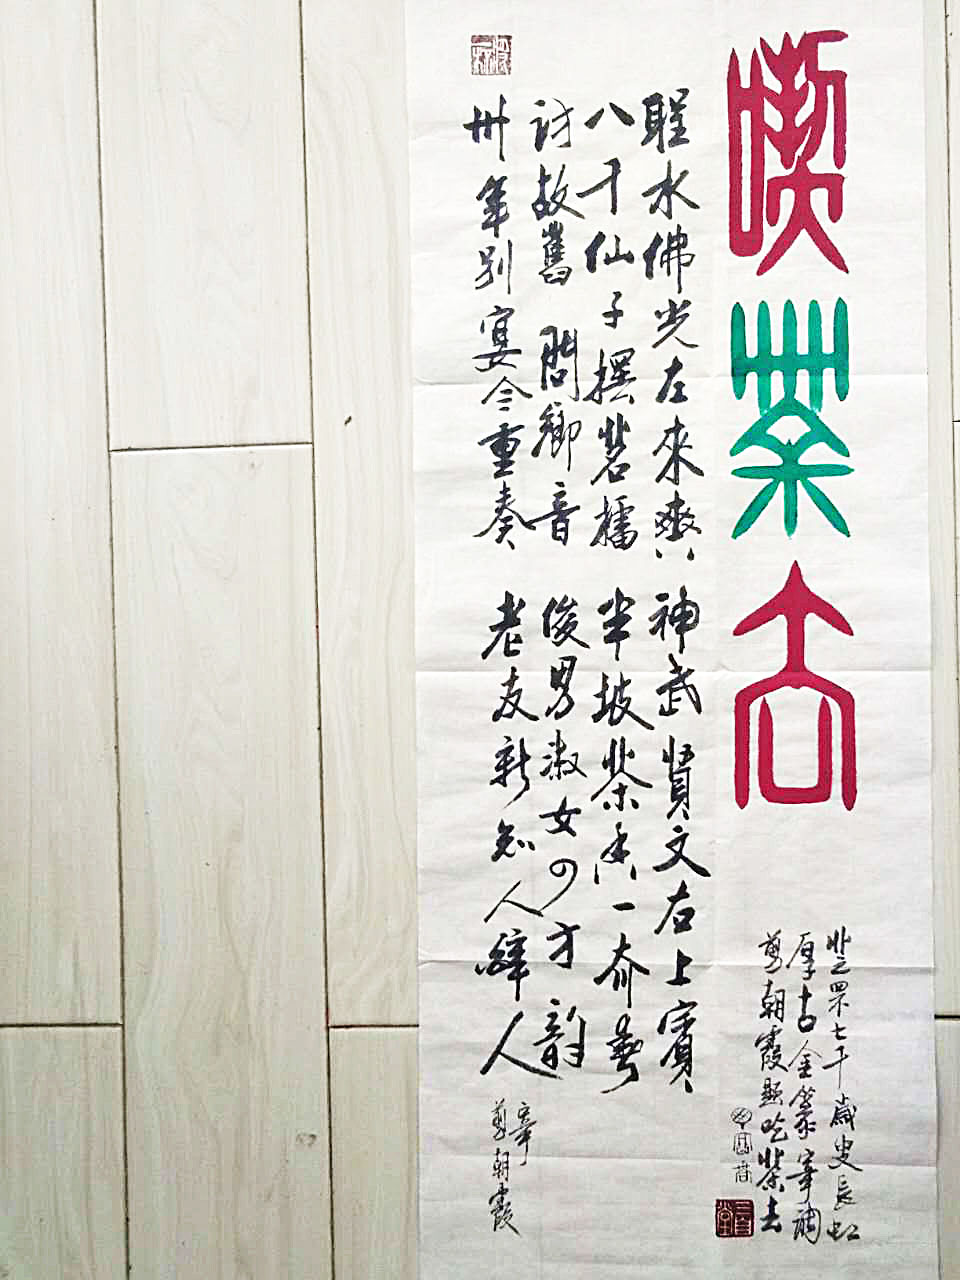 喫茶去
茶界七千歲史長虹
厚古金篆宰調
剪朝霞題吃茶去
水佛光左來爽 神武賢文右上賓
八千仙子擇茗擂 半坡茶香一奔春
討故舊 問鄉音 俊男淑女の才韵
卅年別宴今重奏 老友新知人繹人
宰
剪朝霞